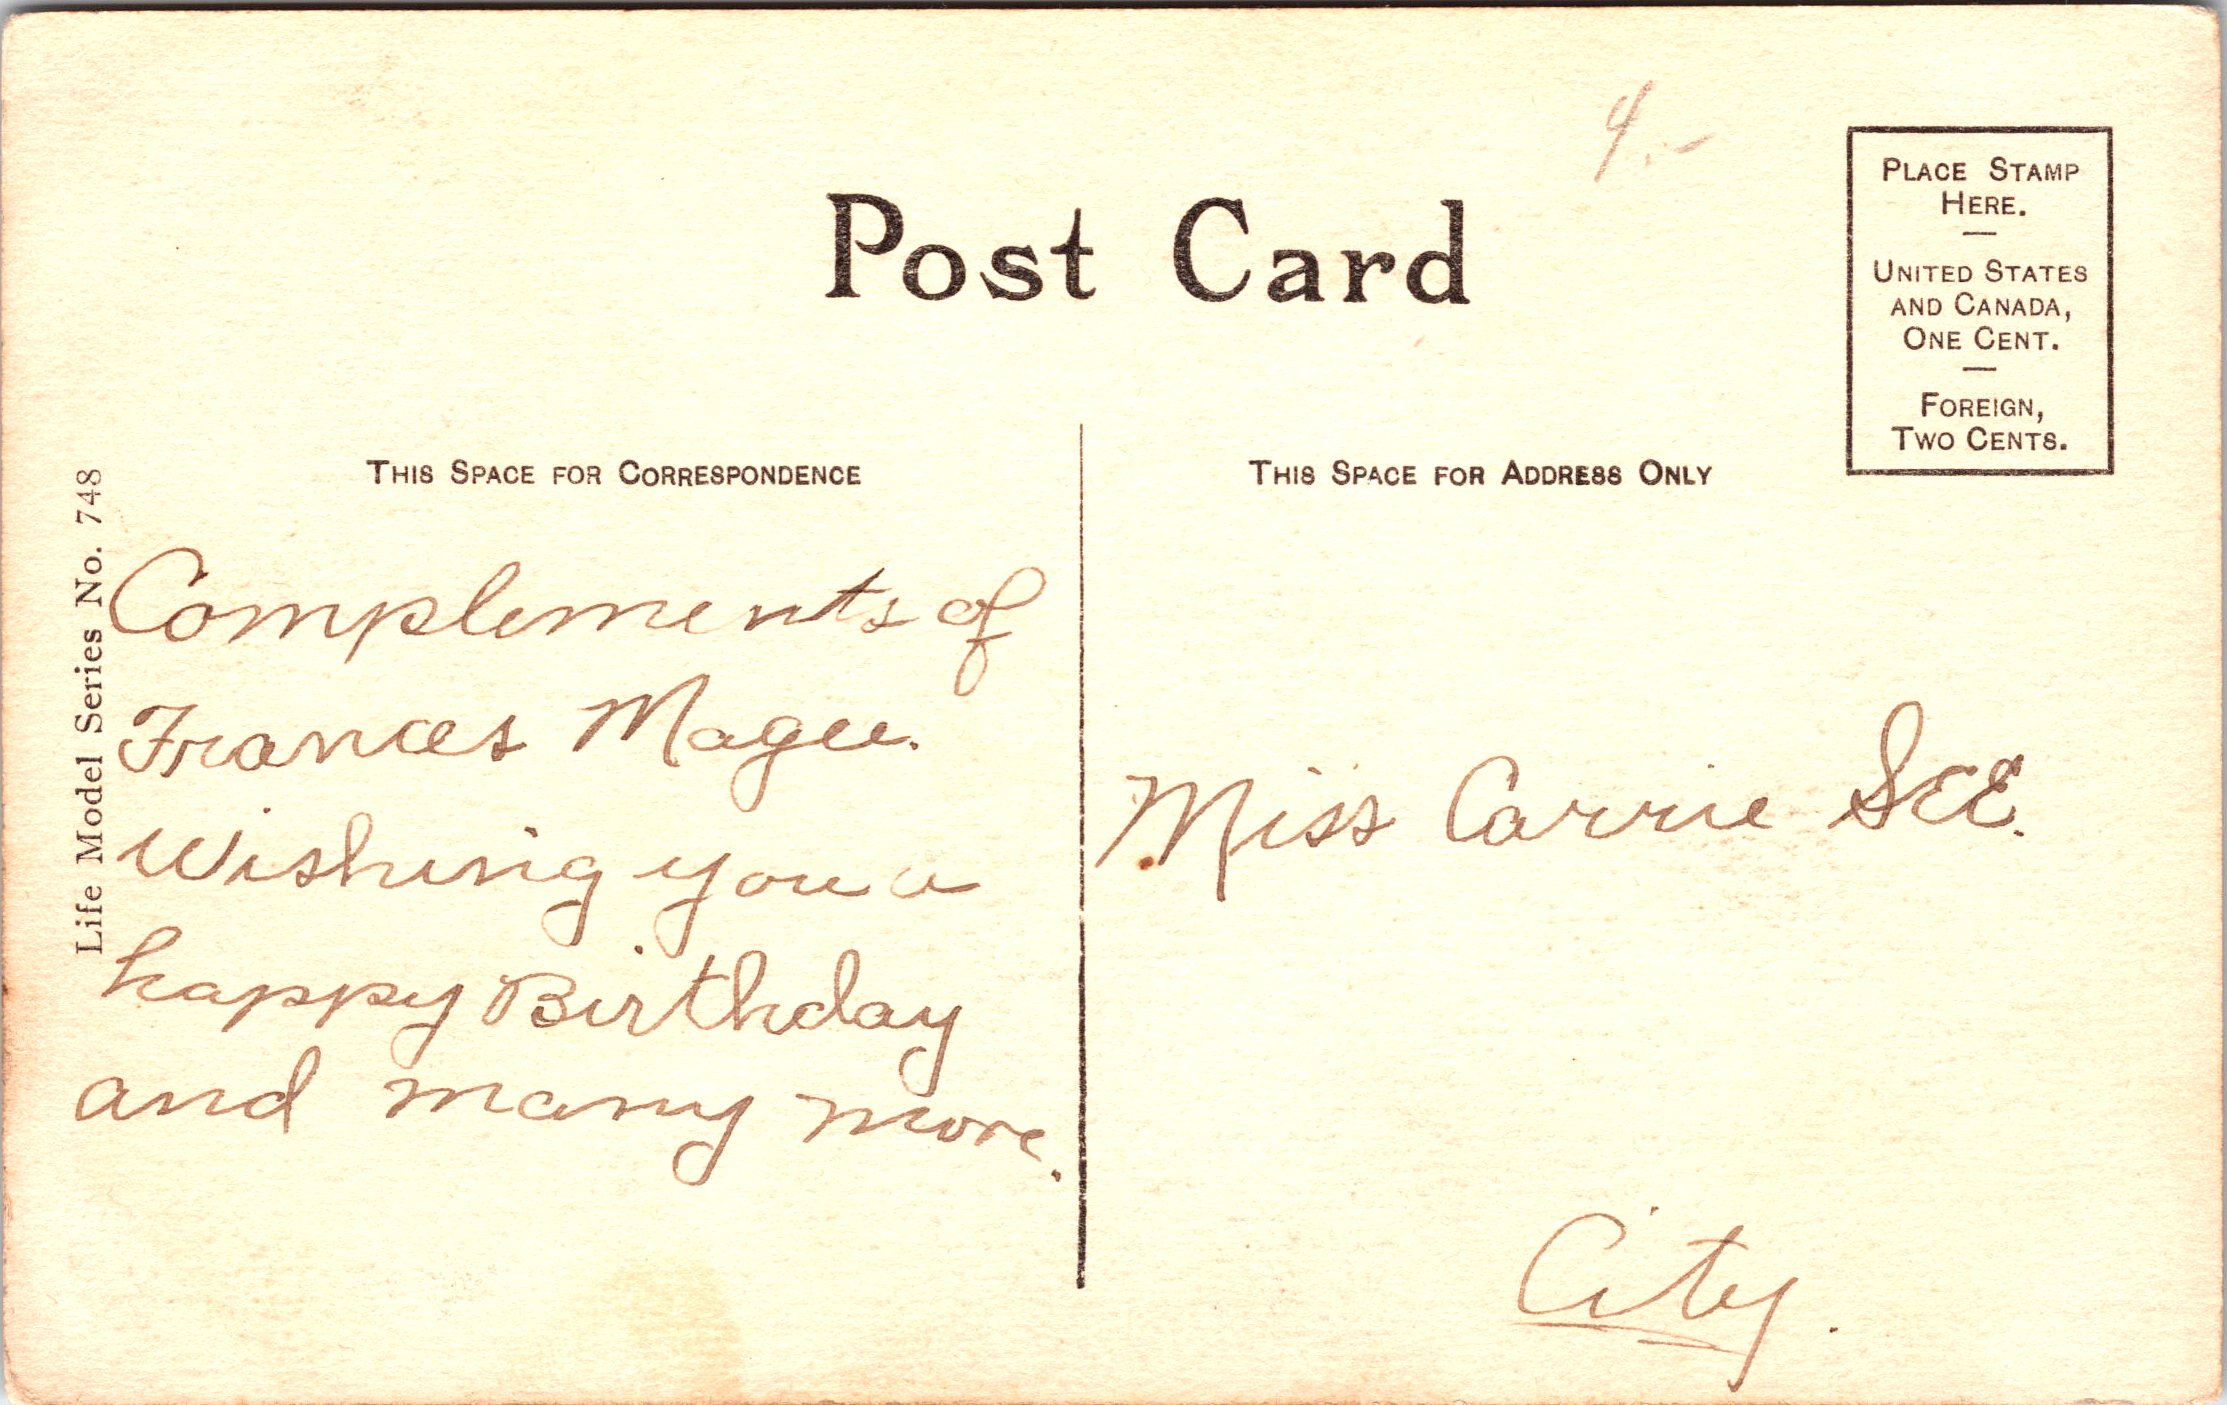 4.-
Post Card
PLACE STAMP
HERE.
UNITED STATES
AND CANADA,
ONE CENT.
FOREIGN,
TWO CENTS.
THIS SPACE FOR CORRESPONDENCE
THIS SPACE FOR ADDRESS ONLY
Life Model Series No. 748
Complements of
Frances Magee.
Wishing you a
happy Birthday
and many more.
Miss Carrie SEE.
City.